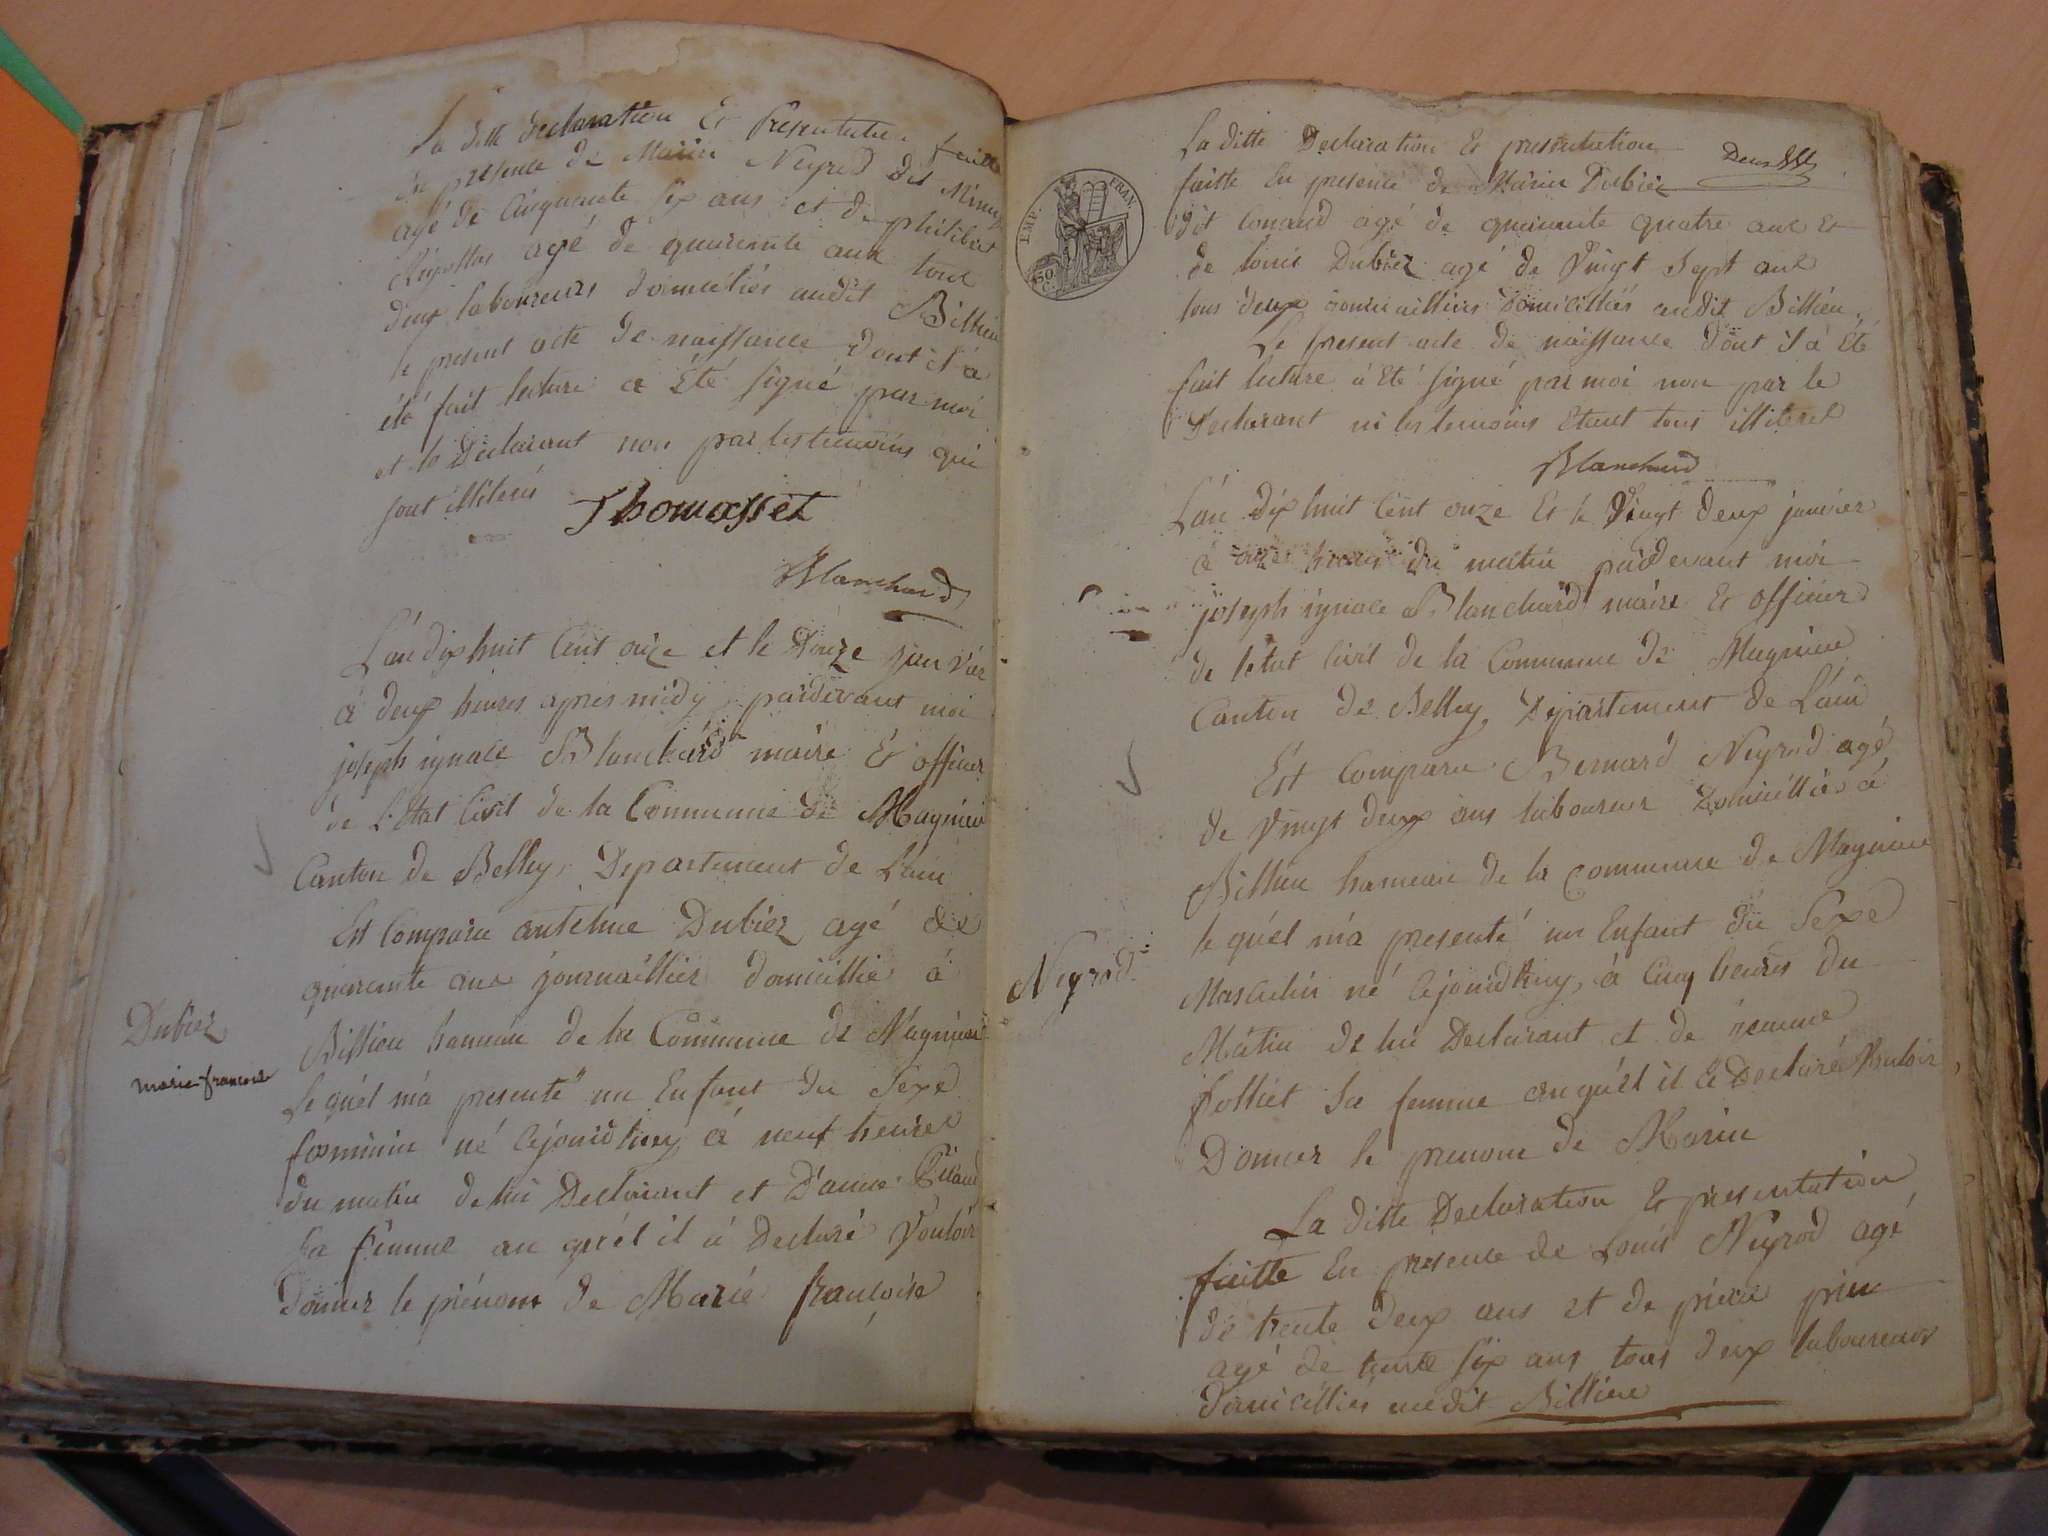 La ditte declaration Et Presentation faitte
En presence de Marin Neyrod dit
agé de Cinquante six ans et de philibert
agé de quarente ans tous
deux laboureurs domiciliés audit Billieu
le present acte de naissance dont il a
été fait lecture a Eté signé par moi
et le Déclarant non par les temoins qui
sont illiterés
Thomasset
Blanchard
L'an dix huit Cent onze et le Douze janvier
à deux heures apres midy, pardevant moi
joseph ignace Blanchard maire Et officier
de L'Etat Civil de la Commune de Magnieu
Canton de Belley, Departement de L'ain
Est Comparu antelme Dubiez agé de
quarente ans journaillier domicillié à
Billieu hameau de la Commune de Magnieu
Le quel m'a presenté un Enfant du Sexe
feminin né Cejourdhuy à neuf heures
du matin de lui Declarant et D'anne
sa femme au quel il à Declaré Vouloir
donner le prénom de Marie francoise
Dubiez
marie-francoise
La ditte Declaration Et presentation
faitte En presence de Marin Dubiez
dit agé de quarante quatre ans Et
de Louis Dubiez agé de Vingt Sept ans
tous deux journailliers domicilliés audit Billieu.
Le present acte de naissance dont il à Eté
fait lecture à Eté signé par moi non par le
Declarant ni les temoins Etant tous illiterés
Blanchard
TIMP. FRAN.
50. C.
L'an Dix huit Cent onze Et le Vingt deux janvier
à onze heures du matin pardevant moi
joseph ignace Blanchard maire Et officier
de letat Civil de la Commune de Magnieu
Canton de Belley, Departement de L'ain
Est Comparu Bernard Neyrod agé
de Vingt deux ans laboureur Domicillié à
Billieu hameau de la Commune de Magnieu
le quel m'a presenté un Enfant du Sexe
Masculin né Cejourdhuy, à Cinq heures du
Matin de lui Declarant et de
Folliet Sa femme au quel il à Declaré Vouloir
Donner le prenom de Marin
Neyrod
La ditte Declaration Et presentation
faitte En presence de Louis Neyrod agé
de trente Deux ans et de
agé de trente Six ans tous deux laboureurs
Domicilliés audit Billieu